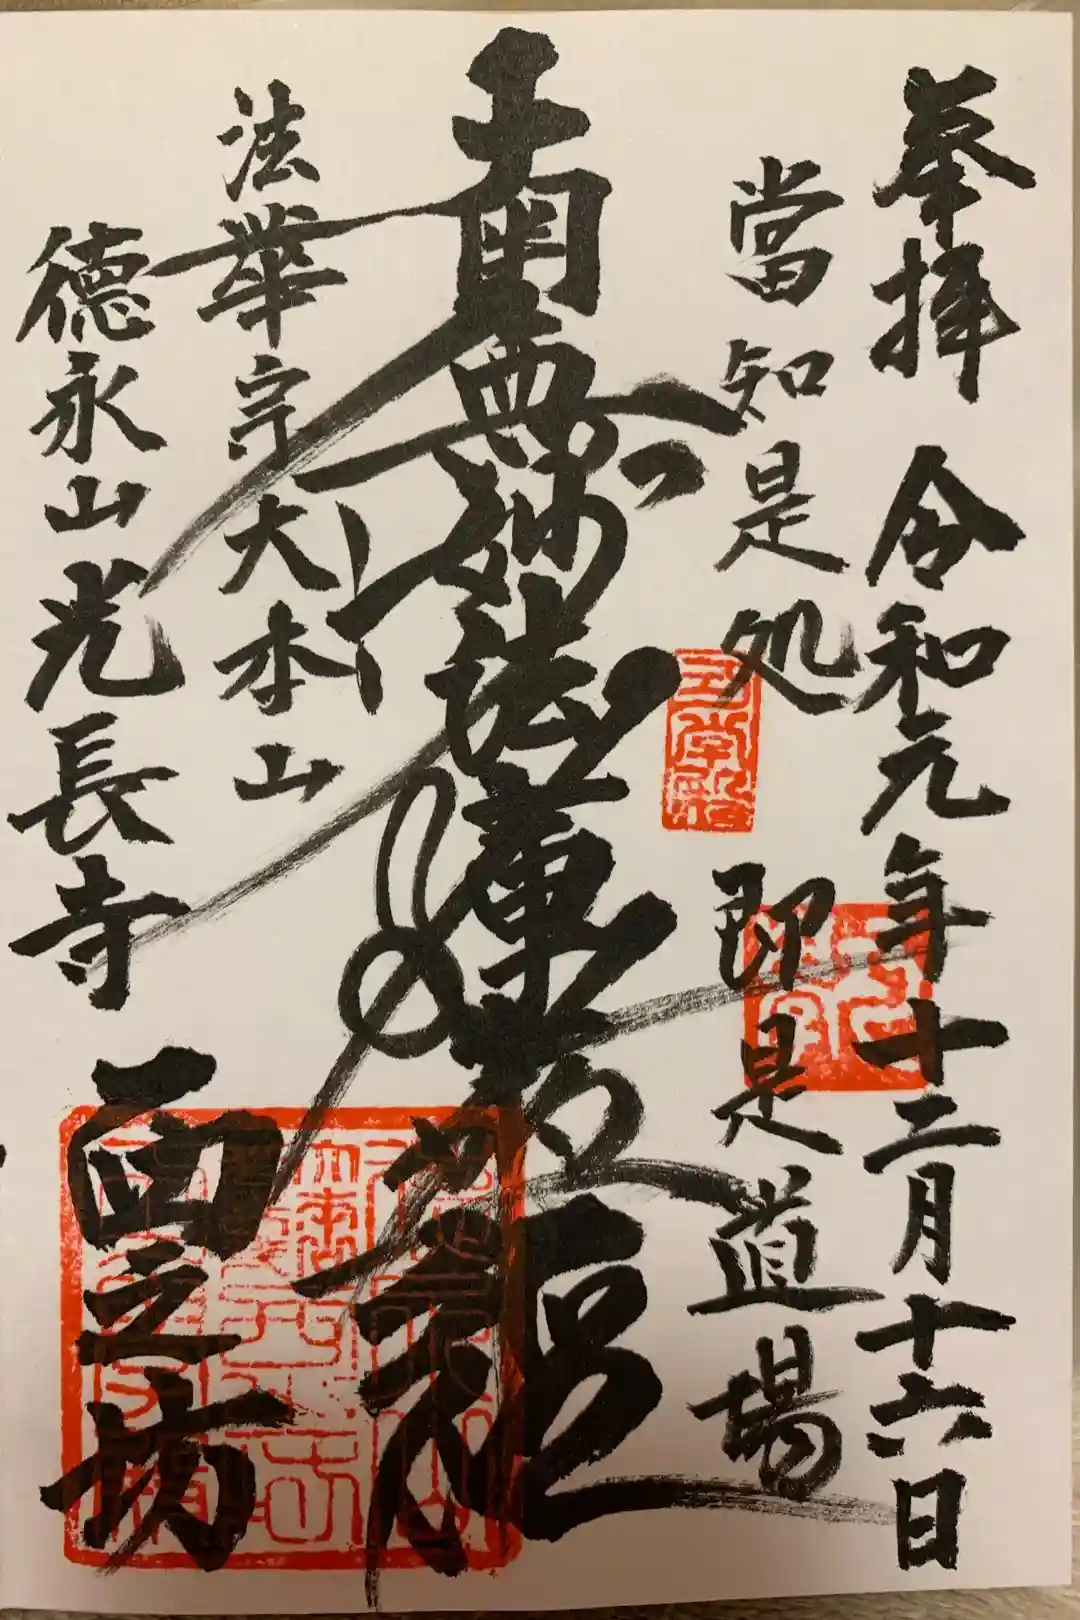 奉拝　令和元年十二月十六日
當知是処　即是道場
南無妙法蓮華経
法華宗大本山
德永山光長寺
西之坊